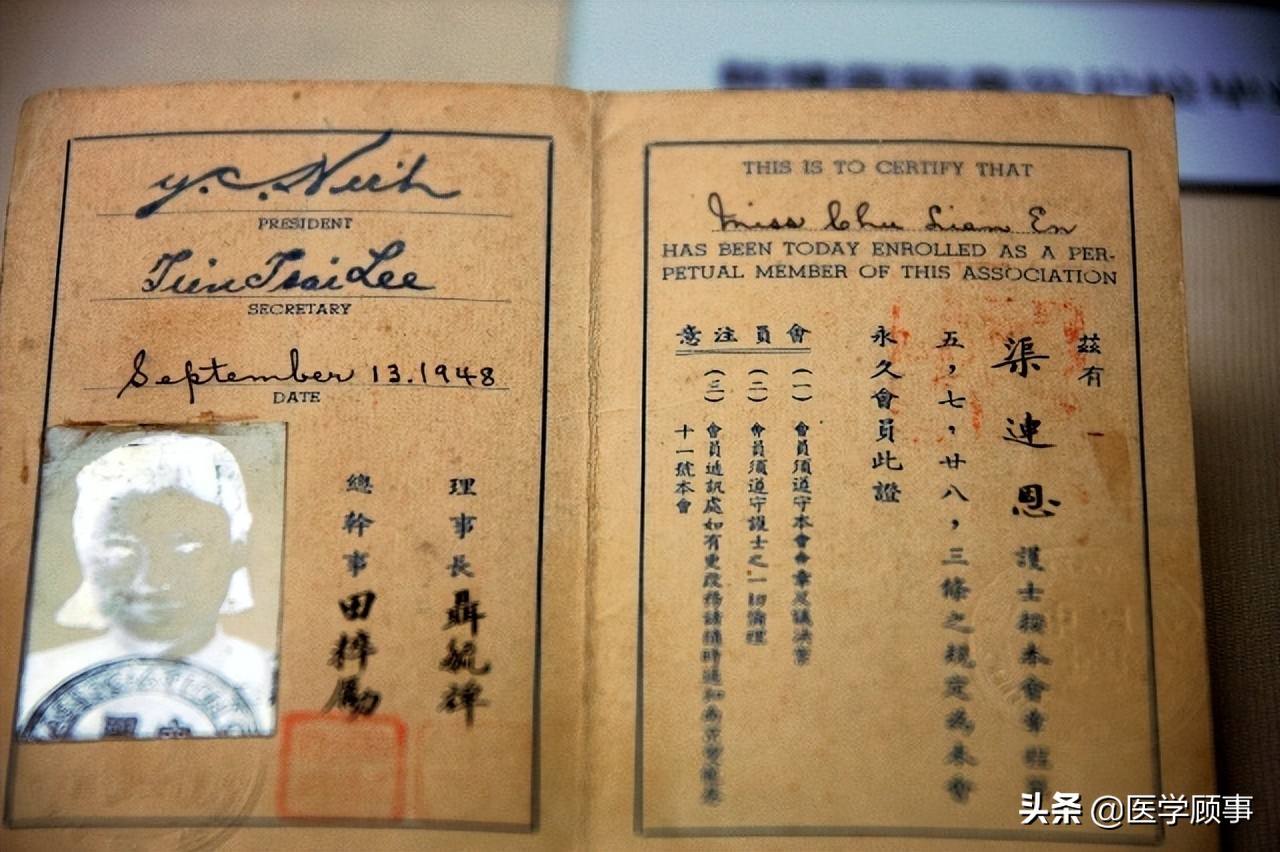 Y. C. Nieh
PRESIDENT
Tien Tsai Lee
SECRETARY
September 13. 1948
DATE
理事長 聶毓禅
總幹事 田粹勵
THIS IS TO CERTIFY THAT
Miss Chu Lian En
HAS BEEN TODAY ENROLLED AS A PER-
PETUAL MEMBER OF THIS ASSOCIATION
茲有
渠連恩護士按本會章程第
五，七，廿八，三條之規定為本會
永久會員此證
會員注意
(一) 會員須遵守本會會章及議決案
(二) 會員須遵守護士之一切倫理
(三) 會員通訊處如有更改務請隨時通知
十一號本會
头条 @医学顾事